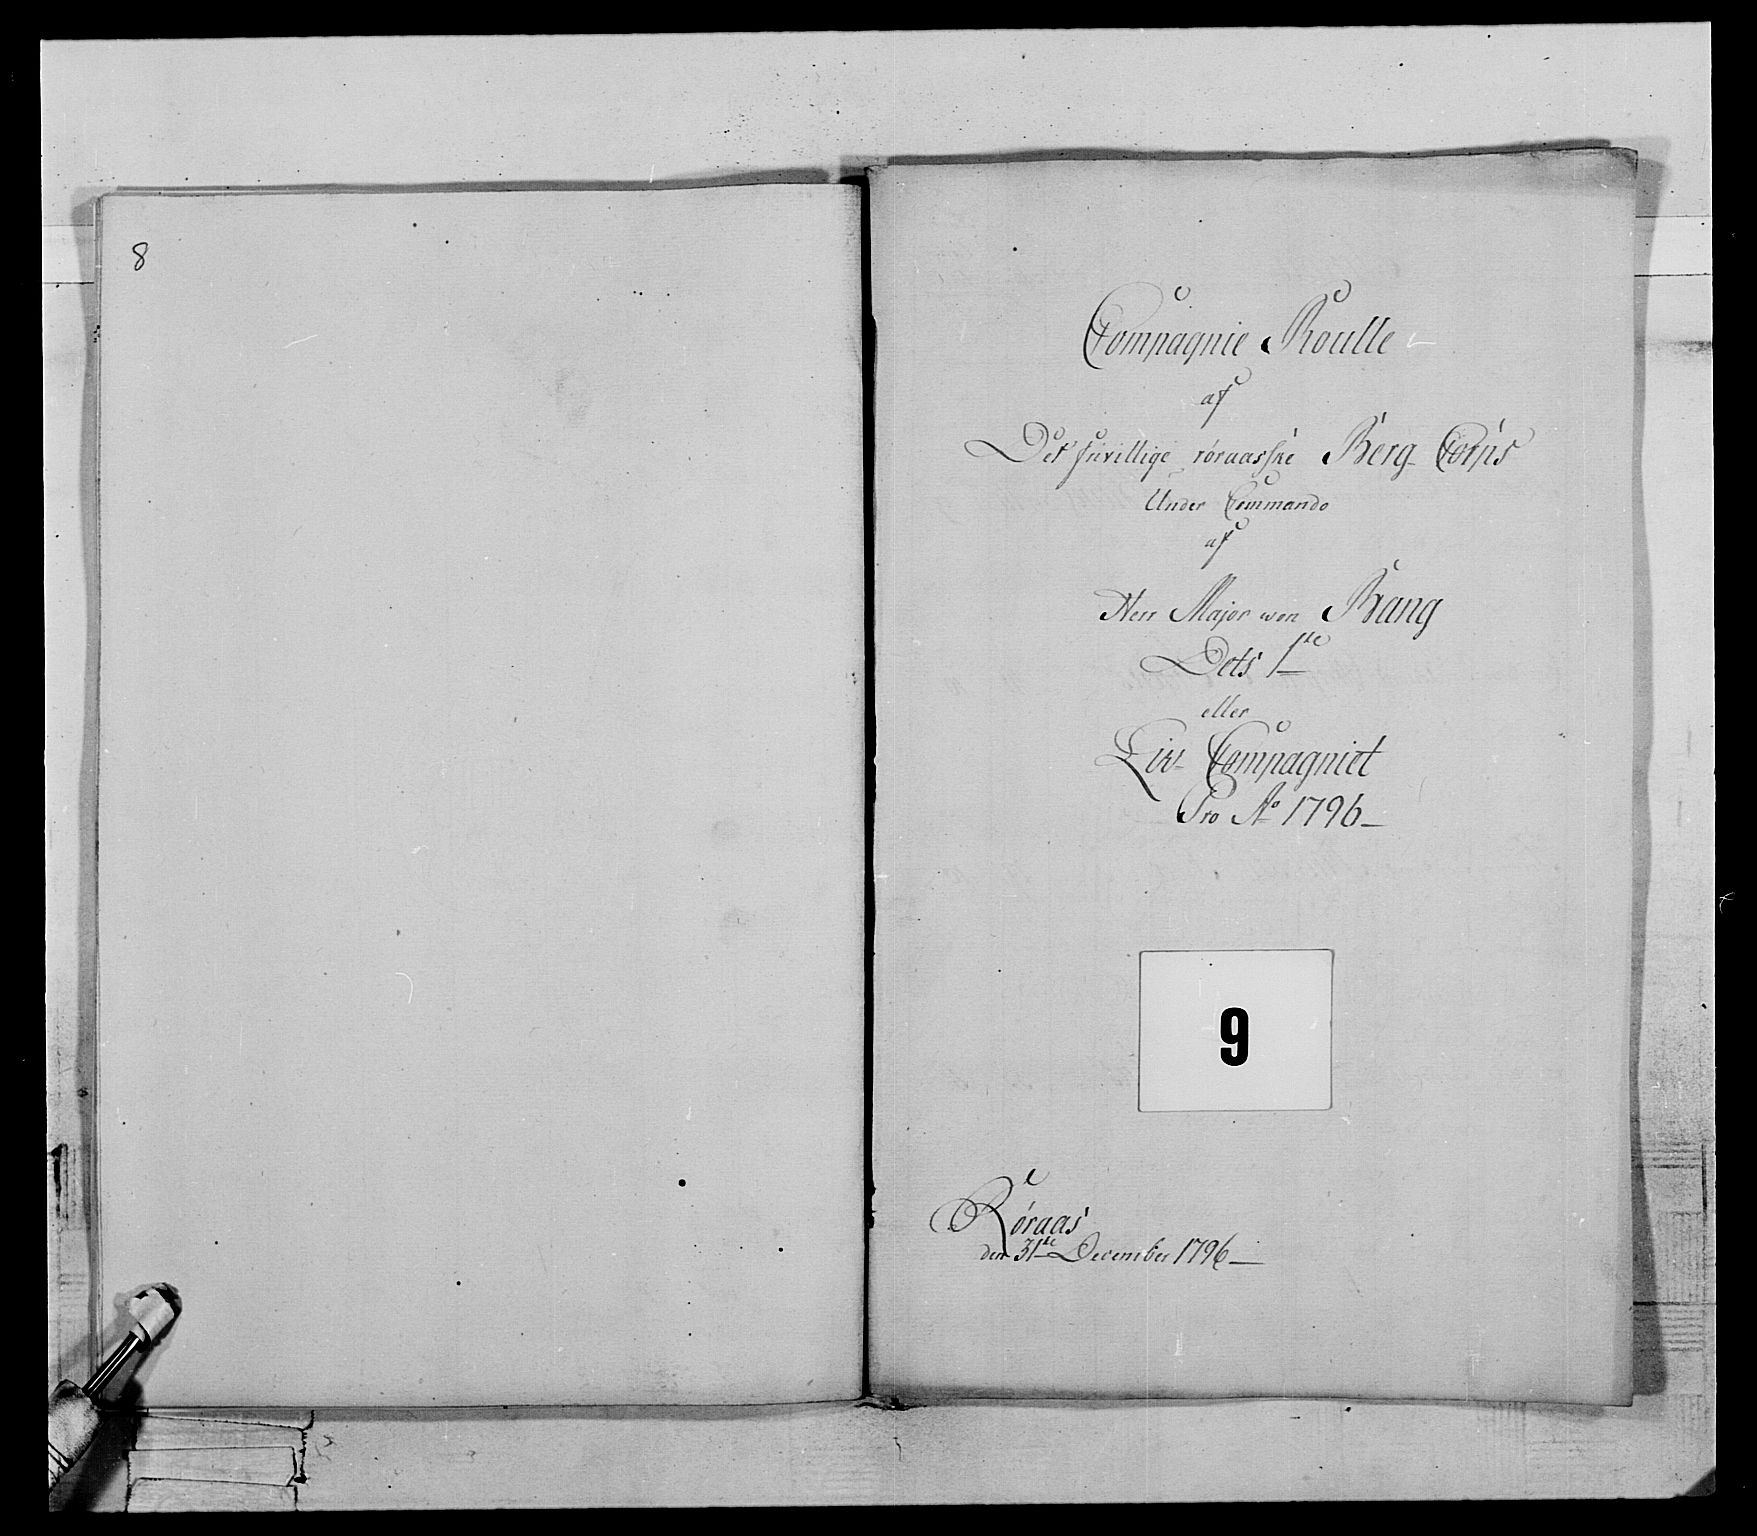 8
Compagnie Roulle
af
Det frivillige røraasske Berg Corps
Under Commando
af
Herr Major won Bang
Dets 1ste
eller
Liv Compagniet
Pro Ao 1796
9
Røraas
den 31te December 1796